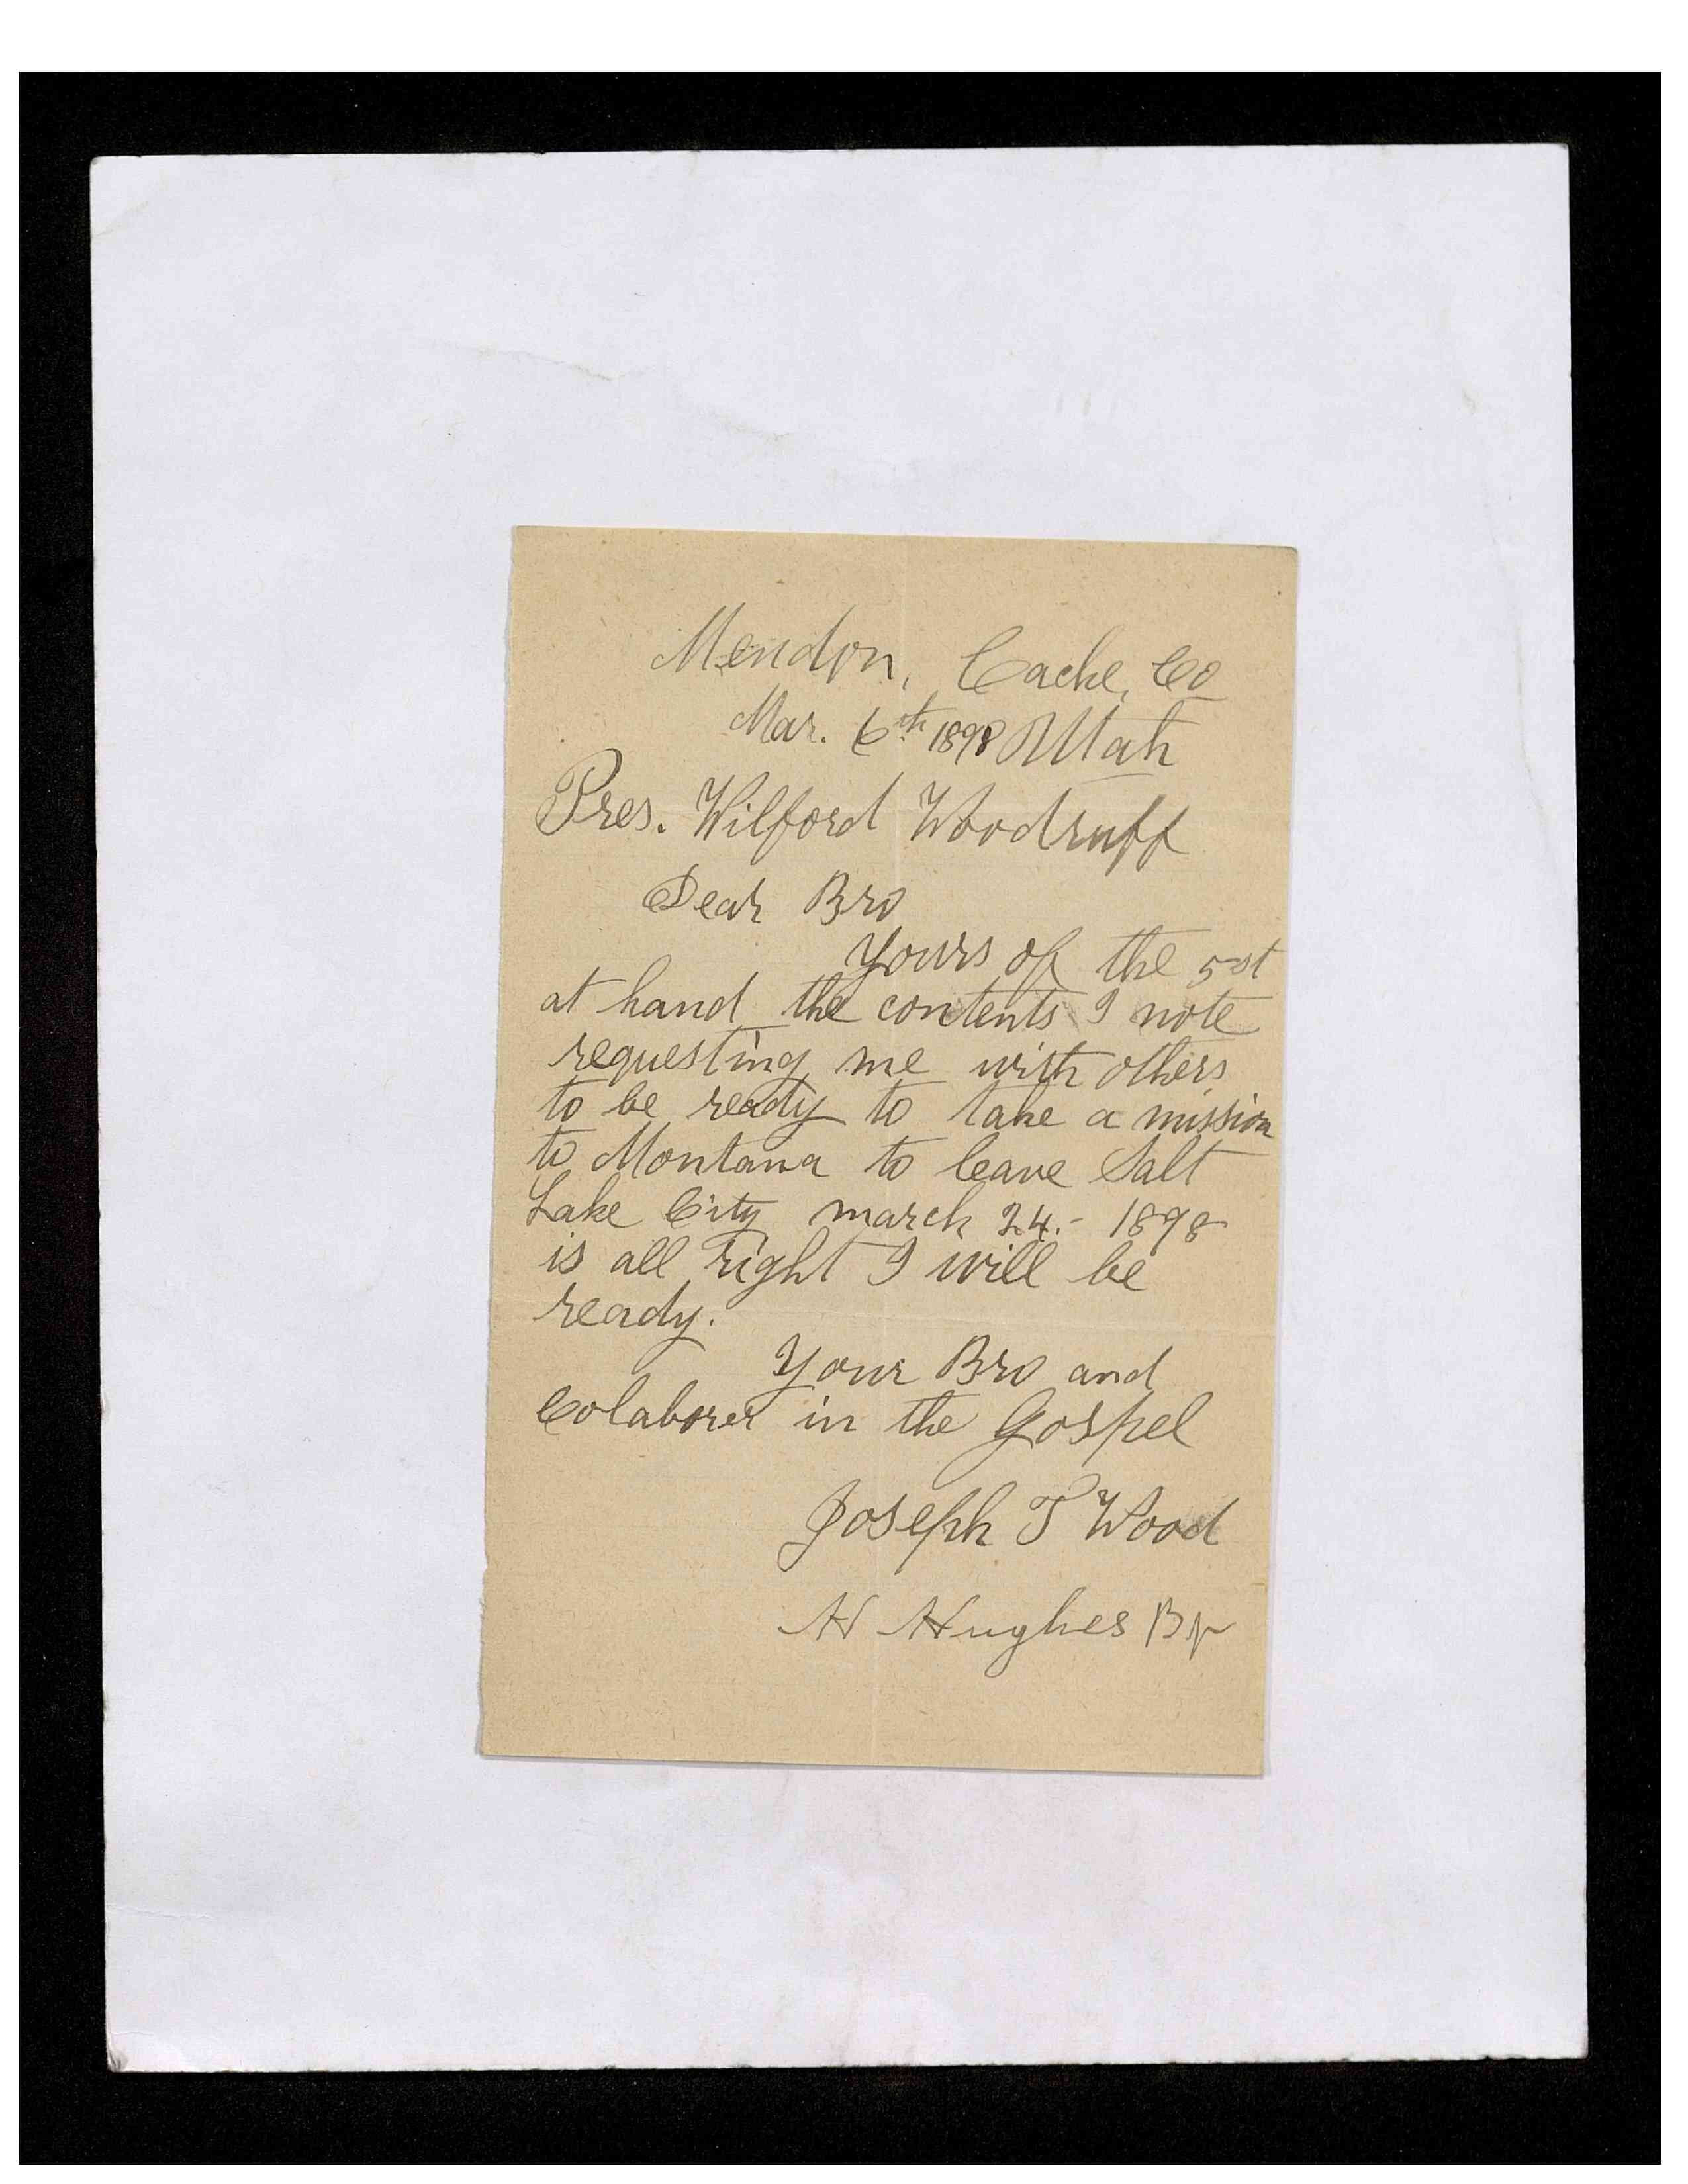 Mendon, Cache, Co
Mar. 6th 1898 Utah
Pres. Wilford Woodruff
Dear Bro
Yours of the 5st
at hand the contents I note
requesting me with others
to be ready to take a mission
to Montana to leave Salt
Lake City march 24.- 1898
is all right I will be
ready.
Your Bro and
Colaborer in the Gospel
Joseph T Wood
H Hughes Bp